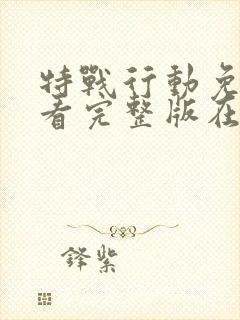 特戰行動免
看完整版在
鋒紫